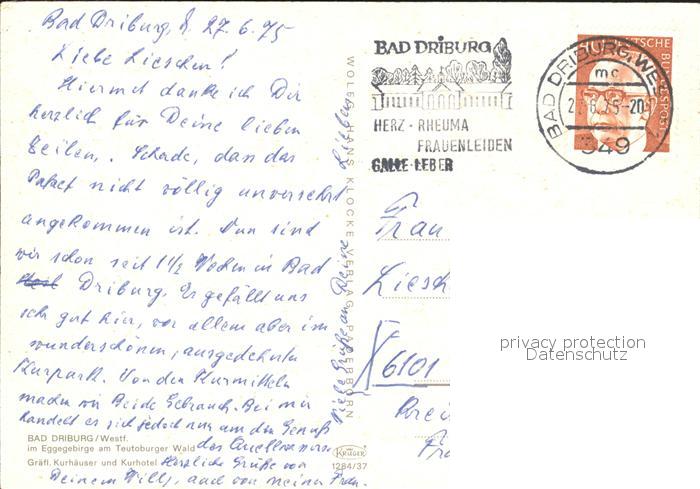 Bad Driburg, d. 27.6.75
Liebe Lieschen!
Hiermit danke ich Dir
herzlich für Deine lieben
Zeilen. Schade, dass das
Paket nicht völlig unversehrt
angekommen ist. Nun sind
wir schon seit 1½ Wochen in Bad
Driburg. Es gefällt uns
sehr gut hier, vor allem aber im
wunderschönen, ausgedehnten
Kurpark. Von den Kurmitteln
machen wir Beide Gebrauch. Bei mir
handelt es sich jedoch nur um den Genuß
des Quellwassers.
Herzliche Grüße von
Deinem Willy, auch von meiner Frau.
Viele Grüße an Deine Lieben
BAD DRIBURG/Westf.
im Eggegebirge am Teutoburger Wald
Gräfl. Kurhäuser und Kurhotel
Krüger
1284/37
WOLFGANG HANS KLOCKE VERLAG PADERBORN
BAD DRIBURG
HERZ · RHEUMA
FRAUENLEIDEN
GALLE · LEBER
BAD DRIBURG, WE
mc
-20
349
DEUTSCHE BUNDESPOST
Frau
Liesch
6101
privacy protection
Datenschutz